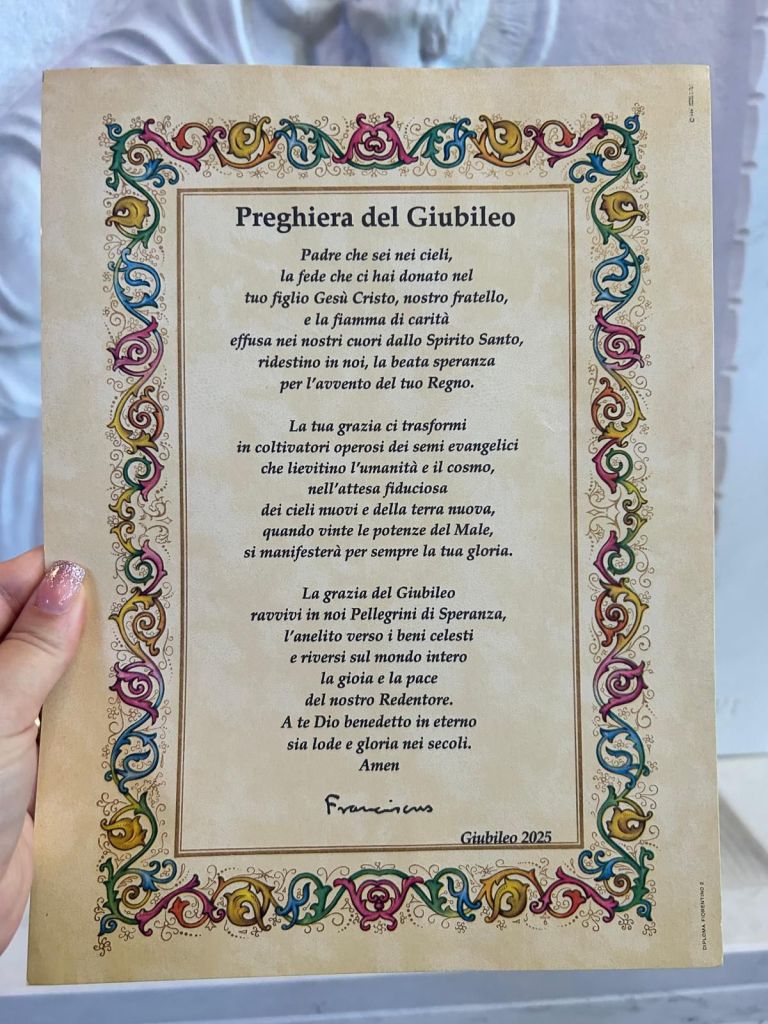 Preghiera del Giubileo
Padre che sei nei cieli,
la fede che ci hai donato nel
tuo figlio Gesù Cristo, nostro fratello,
e la fiamma di carità
effusa nei nostri cuori dallo Spirito Santo,
ridestino in noi, la beata speranza
per l'avvento del tuo Regno.
La tua grazia ci trasformi
in coltivatori operosi dei semi evangelici
che lievitino l'umanità e il cosmo,
nell'attesa fiduciosa
dei cieli nuovi e della terra nuova,
quando vinte le potenze del Male,
si manifesterà per sempre la tua gloria.
La grazia del Giubileo
ravvivi in noi Pellegrini di Speranza,
l'anelito verso i beni celesti
e riversi sul mondo intero
la gioia e la pace
del nostro Redentore.
A te Dio benedetto in eterno
sia lode e gloria nei secoli.
Amen
Franciscus
Giubileo 2025
DIPLOMA FIORENTINO 2